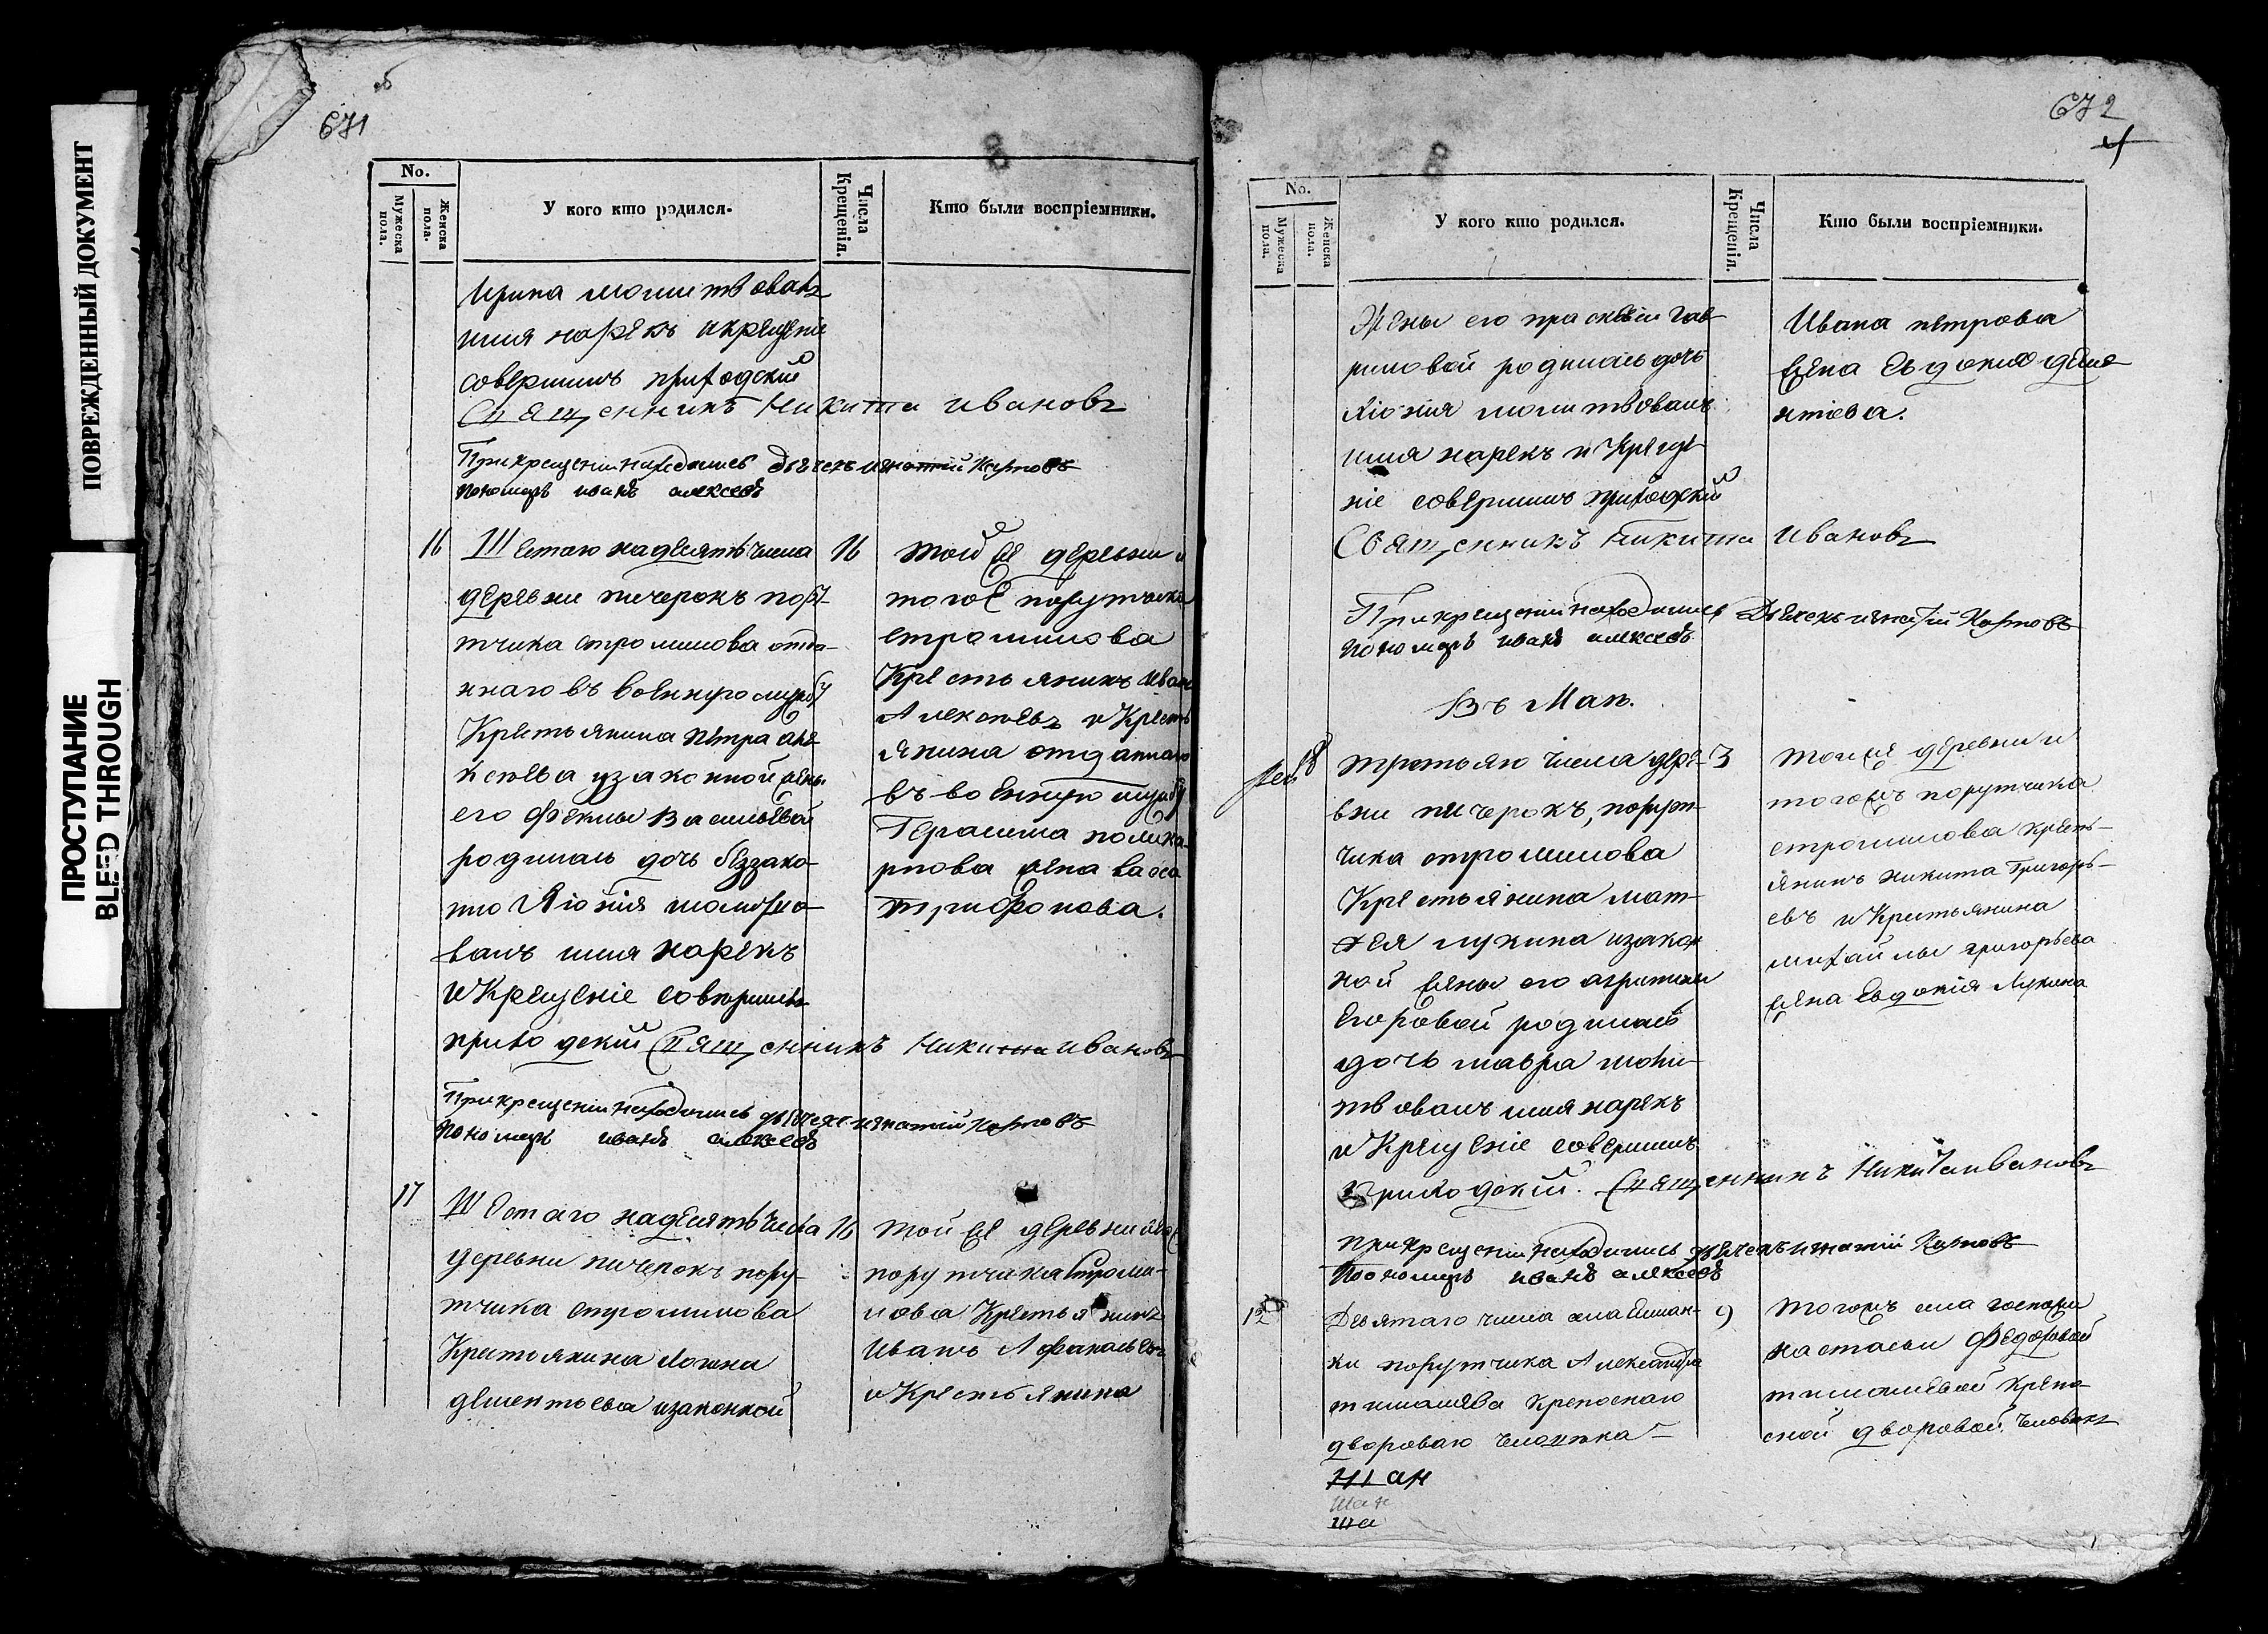 ПОВРЕЖДЕННЫЙ ДОКУМЕНТ
ПРОСТУПАНИЕ
BLEED THROUGH
671
No.
Мужеска пола.
Женска пола.
У кого кто родился.
Числа Крещенія.
Кто были воспріемники.
Ирина молитвовалъ
имя нарекъ икрещеніе
совершилъ приходскій
Священникъ Никита Ивановъ
Прикрещеніи находились дьячекъ игнатій Карповъ
пономарь иванъ алексеевъ
16 Шестаго надесять числа 16
деревни печерокъ пору-
тчика стромилова отда-
ннаго въ военную службу
Крестьянина петра але
ксеева узаконной жены
его Феклы Васильевой
родилась дочь беззако-
но Якіонія молитво-
валъ имя нарекъ
и Крещеніе совершилъ
приходскій Священникъ Никита Ивановъ
той же деревни и
тогоже порутчика
стромилова
Крестьянинъ Иванъ
Алексеевъ и Кресть
янина отданнаго
въ военную службу
Герасима полика
рпова жена васса
трифонова.
Прикрещеніи находились дьячекъ игнатій Карповъ
пономарь иванъ алексеевъ
17 Шестаго надесять числа 16
деревни печерокъ пору-
тчика стромилова
Крестьянина Логина
дементьева изаконной
той же деревни
порутчика Строми-
лова Крестьянинъ
Иванъ Афанасьевъ
и Крестьянина
672
4
No.
Мужеска пола.
Женска пола.
У кого кто родился.
Числа Крещенія.
Кто были воспріемники.
Жены его прасковіи гав
риловой родилась дочь
Якіонія молитвовалъ
имя нарекъ и Креще
ніе совершилъ приходскій
Священникъ Никита Ивановъ
Ивана петрова
жена Евдокия деме
нтіева.
Прикрещеніи находились Дьячекъ игнатій Карповъ
пономарь иванъ алексеевъ
Въ Маи.
18 третьяго числа дере- 3
вни печерокъ, порут-
чика стромилова
Крестьянина мат-
фея лукина изакон
ной жены его агрипины
Егоровой родилась
дочь мавра моли-
твовалъ имя нарекъ
и Крещеніе совершилъ
Приходскій. Священникъ Никита Ивановъ
той же деревни и
тогожъ порутчика
стромилова кресть-
янинъ никита Григорь-
евъ и Крестьянина
михайлы григорьева
жена Евдокія Лукина
прикрещеніи находились дьячекъ игнатій Карповъ
Пономарь иванъ алексеевъ
12 Девятаго числа села Елшан- 9
ки порутчика Александра
тимашева крепоснаго
двороваго человека
ан
Шан
ша
тогожъ села госпожи
настасьи Федоровой
тимашевой крепо
сной дворовой человекъ